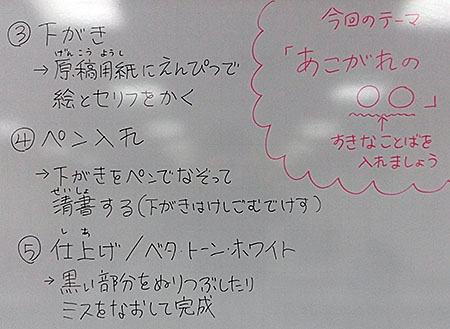 ③下がき
げんこうようし
→原稿用紙にえんぴつで
絵とセリフをかく
④ペン入れ
→下がきをペンでなぞって
せいしょ
清書する(下がきはけしごむでけす)
しあ
⑤仕上げ/ベタ・トーン・ホワイト
→黒い部分をぬりつぶしたり
ミスをなおして完成
今回のテーマ
「あこがれの
○○」
↑
おきなことばを
入れましょう